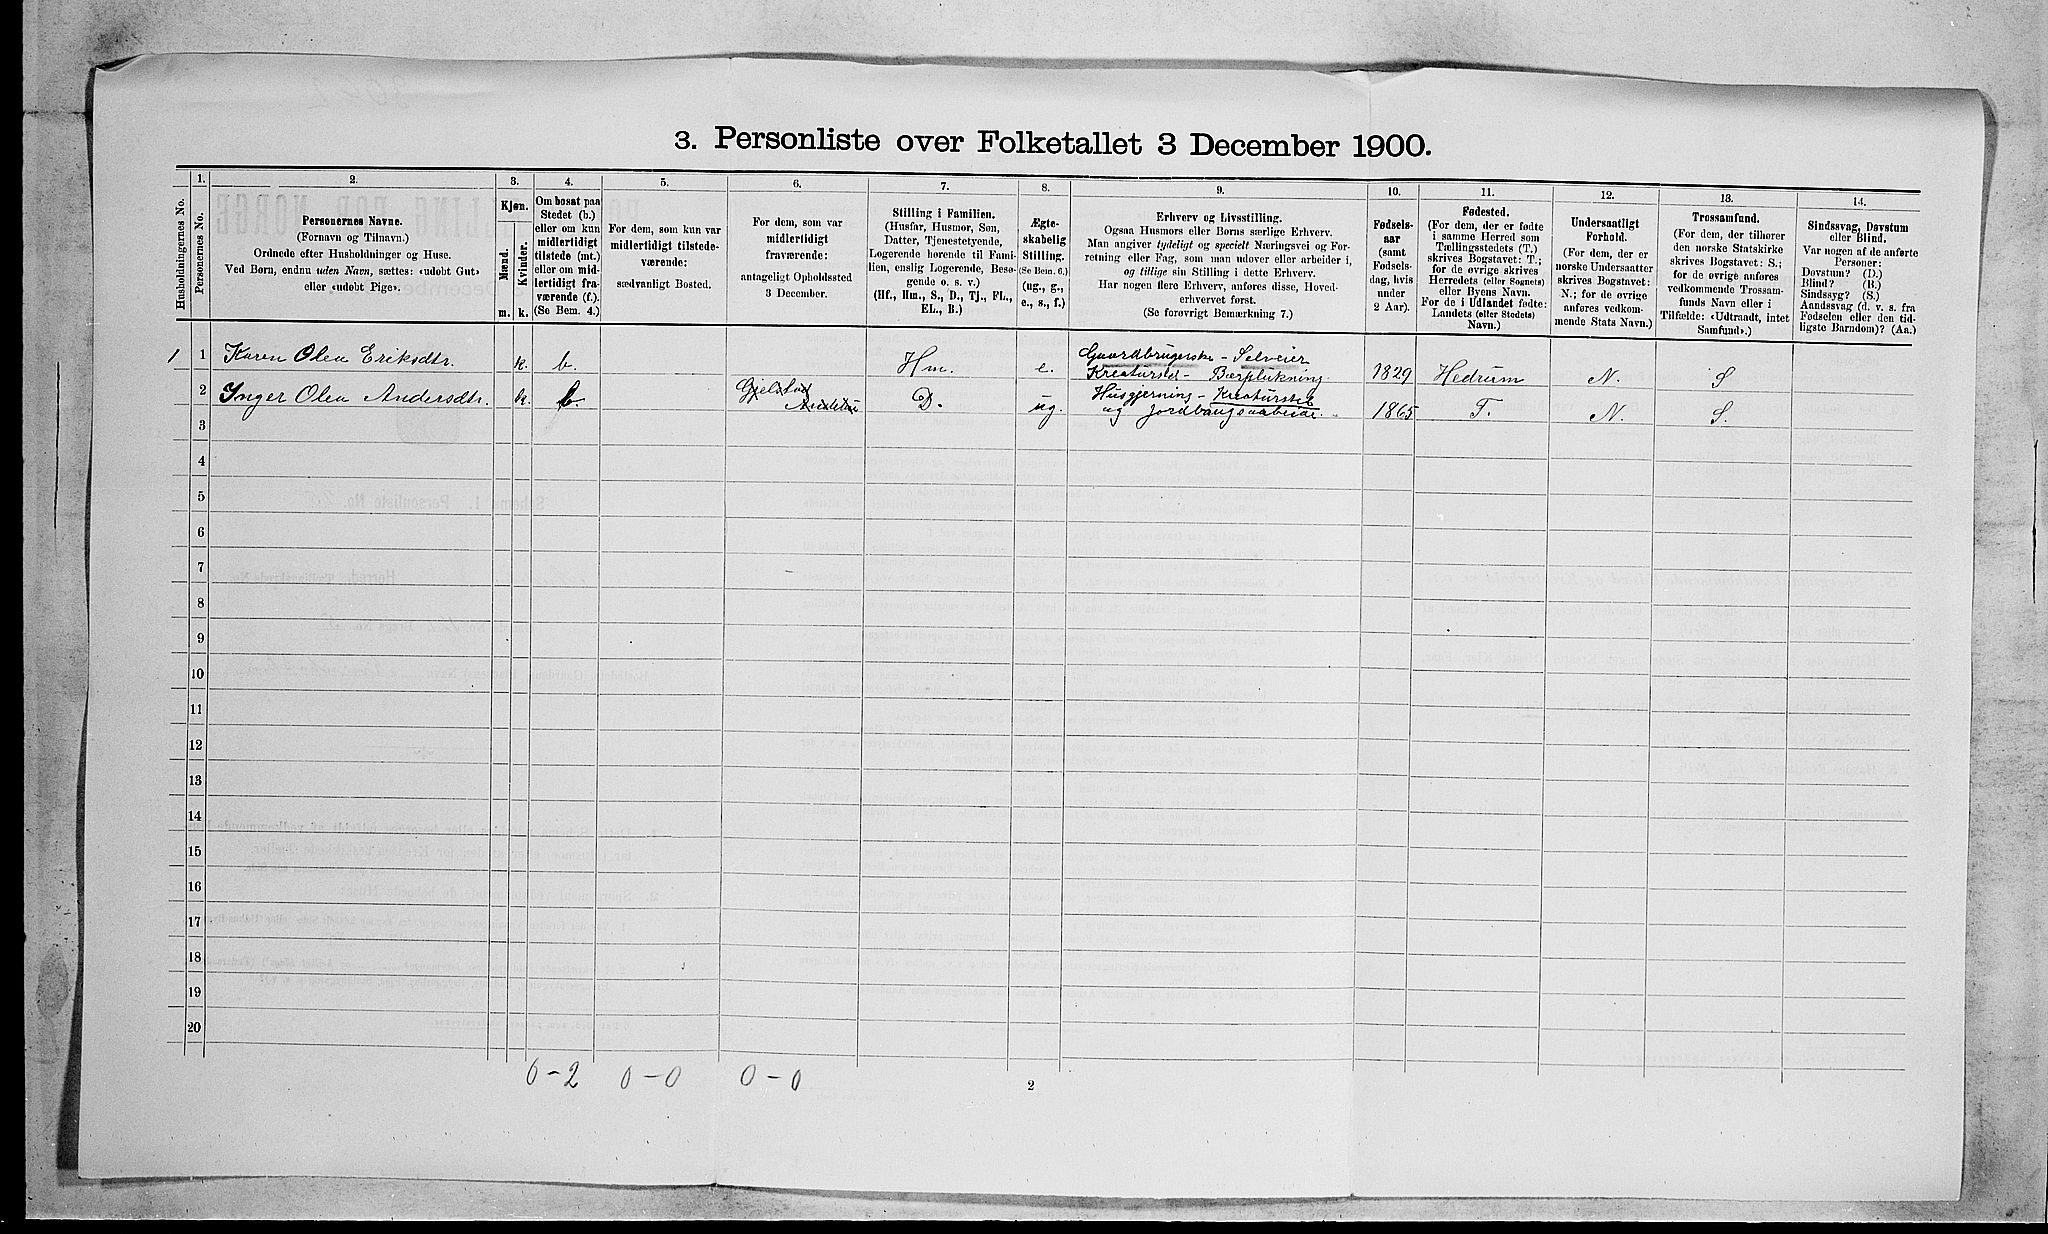 3. Personliste over Folketallet 3 December 1900.
Husholdningernes No.
1.
Personernes No.
2.
Personernes Navne.
(Fornavn og Tilnavn.)
Ordnede efter Husholdninger og Huse.
Ved Børn, endnu uden Navn, sættes: «udøbt Gut»
eller «udøbt Pige».
3.
Kjøn.
Mænd.
Kvinder.
m.
k.
4.
Om bosat paa
Stedet (b.)
eller om kun
midlertidigt
tilstede (mt.)
eller om mid-
lertidigt fra-
værende (f.).
(Se Bem. 4.)
5.
For dem, som kun var
midlertidigt tilstede-
værende:
sædvanligt Bosted.
6.
For dem, som var
midlertidigt
fraværende:
antageligt Opholdssted
3 December.
7.
Stilling i Familien.
(Husfar, Husmor, Søn,
Datter, Tjenestetyende,
Logerende hørende til Fami-
lien, enslig Logerende, Besø-
gende o. s. v.)
(Hf., Hm., S., D., Tj., FL.,
EL., B.)
8.
Ægte-
skabelig
Stilling.
(Se Bem. 6.)
(ug., g.,
e., s., f.)
9.
Erhverv og Livsstilling.
Ogsaa Husmors eller Børns særlige Erhverv.
Man angiver tydeligt og specielt Næringsvei og For-
retning eller Fag, som man udøver eller arbeider i,
og tillige sin Stilling i dette Erhverv.
Har nogen flere Erhverv, anføres disse, Hoved-
erhvervet først.
(Se forøvrigt Bemærkning 7.)
10.
Fødsels-
aar
(samt
Fødsels-
dag, hvis
under
2 Aar).
11.
Fødested.
(For dem, der er fødte
i samme Herred som
Tællingsstedets (T.)
skrives Bogstavet: T.;
for de øvrige skrives
Herredets (eller Sognets)
eller Byens Navn.
For de i Udlandet fødte:
Landets (eller Stedets)
Navn.)
12.
Undersaatligt
Forhold.
(For dem, der er
norske Undersaatter
skrives Bogstavet:
N.; for de øvrige
anføres vedkom-
mende Stats Navn.)
13.
Trossamfund.
(For dem, der tilhører
den norske Statskirke
skrives Bogstavet: S.;
for de øvrige anføres
vedkommende Trossam-
funds Navn eller i
Tilfælde: «Udtraadt, intet
Samfund».)
14.
Sindssvag, Døvstum
eller Blind.
Var nogen af de anførte
Personer:
Døvstum? (D.)
Blind? (B.)
Sindssyg? (S.)
Aandssvag (d. v. s. fra
Fødselen eller den tid-
ligste Barndom)? (Aa.)
1 1 Karen Olea Eriksdtr. k. b. Hm. e. Gaardbrugerske - Selveier
Kreaturstel - Bærplukning. 1829 Hedrum N. S
2 Inger Olea Andersdtr. k. b. Gjelstad
D. ug. Husgjerning - Kreaturstel
og Jordbrugsarbeide. 1865 T. N. S.
3
4
5
6
7
8
9
10
11
12
13
14
15
16
17
18
19
20
0-2 0-0 0-0
2